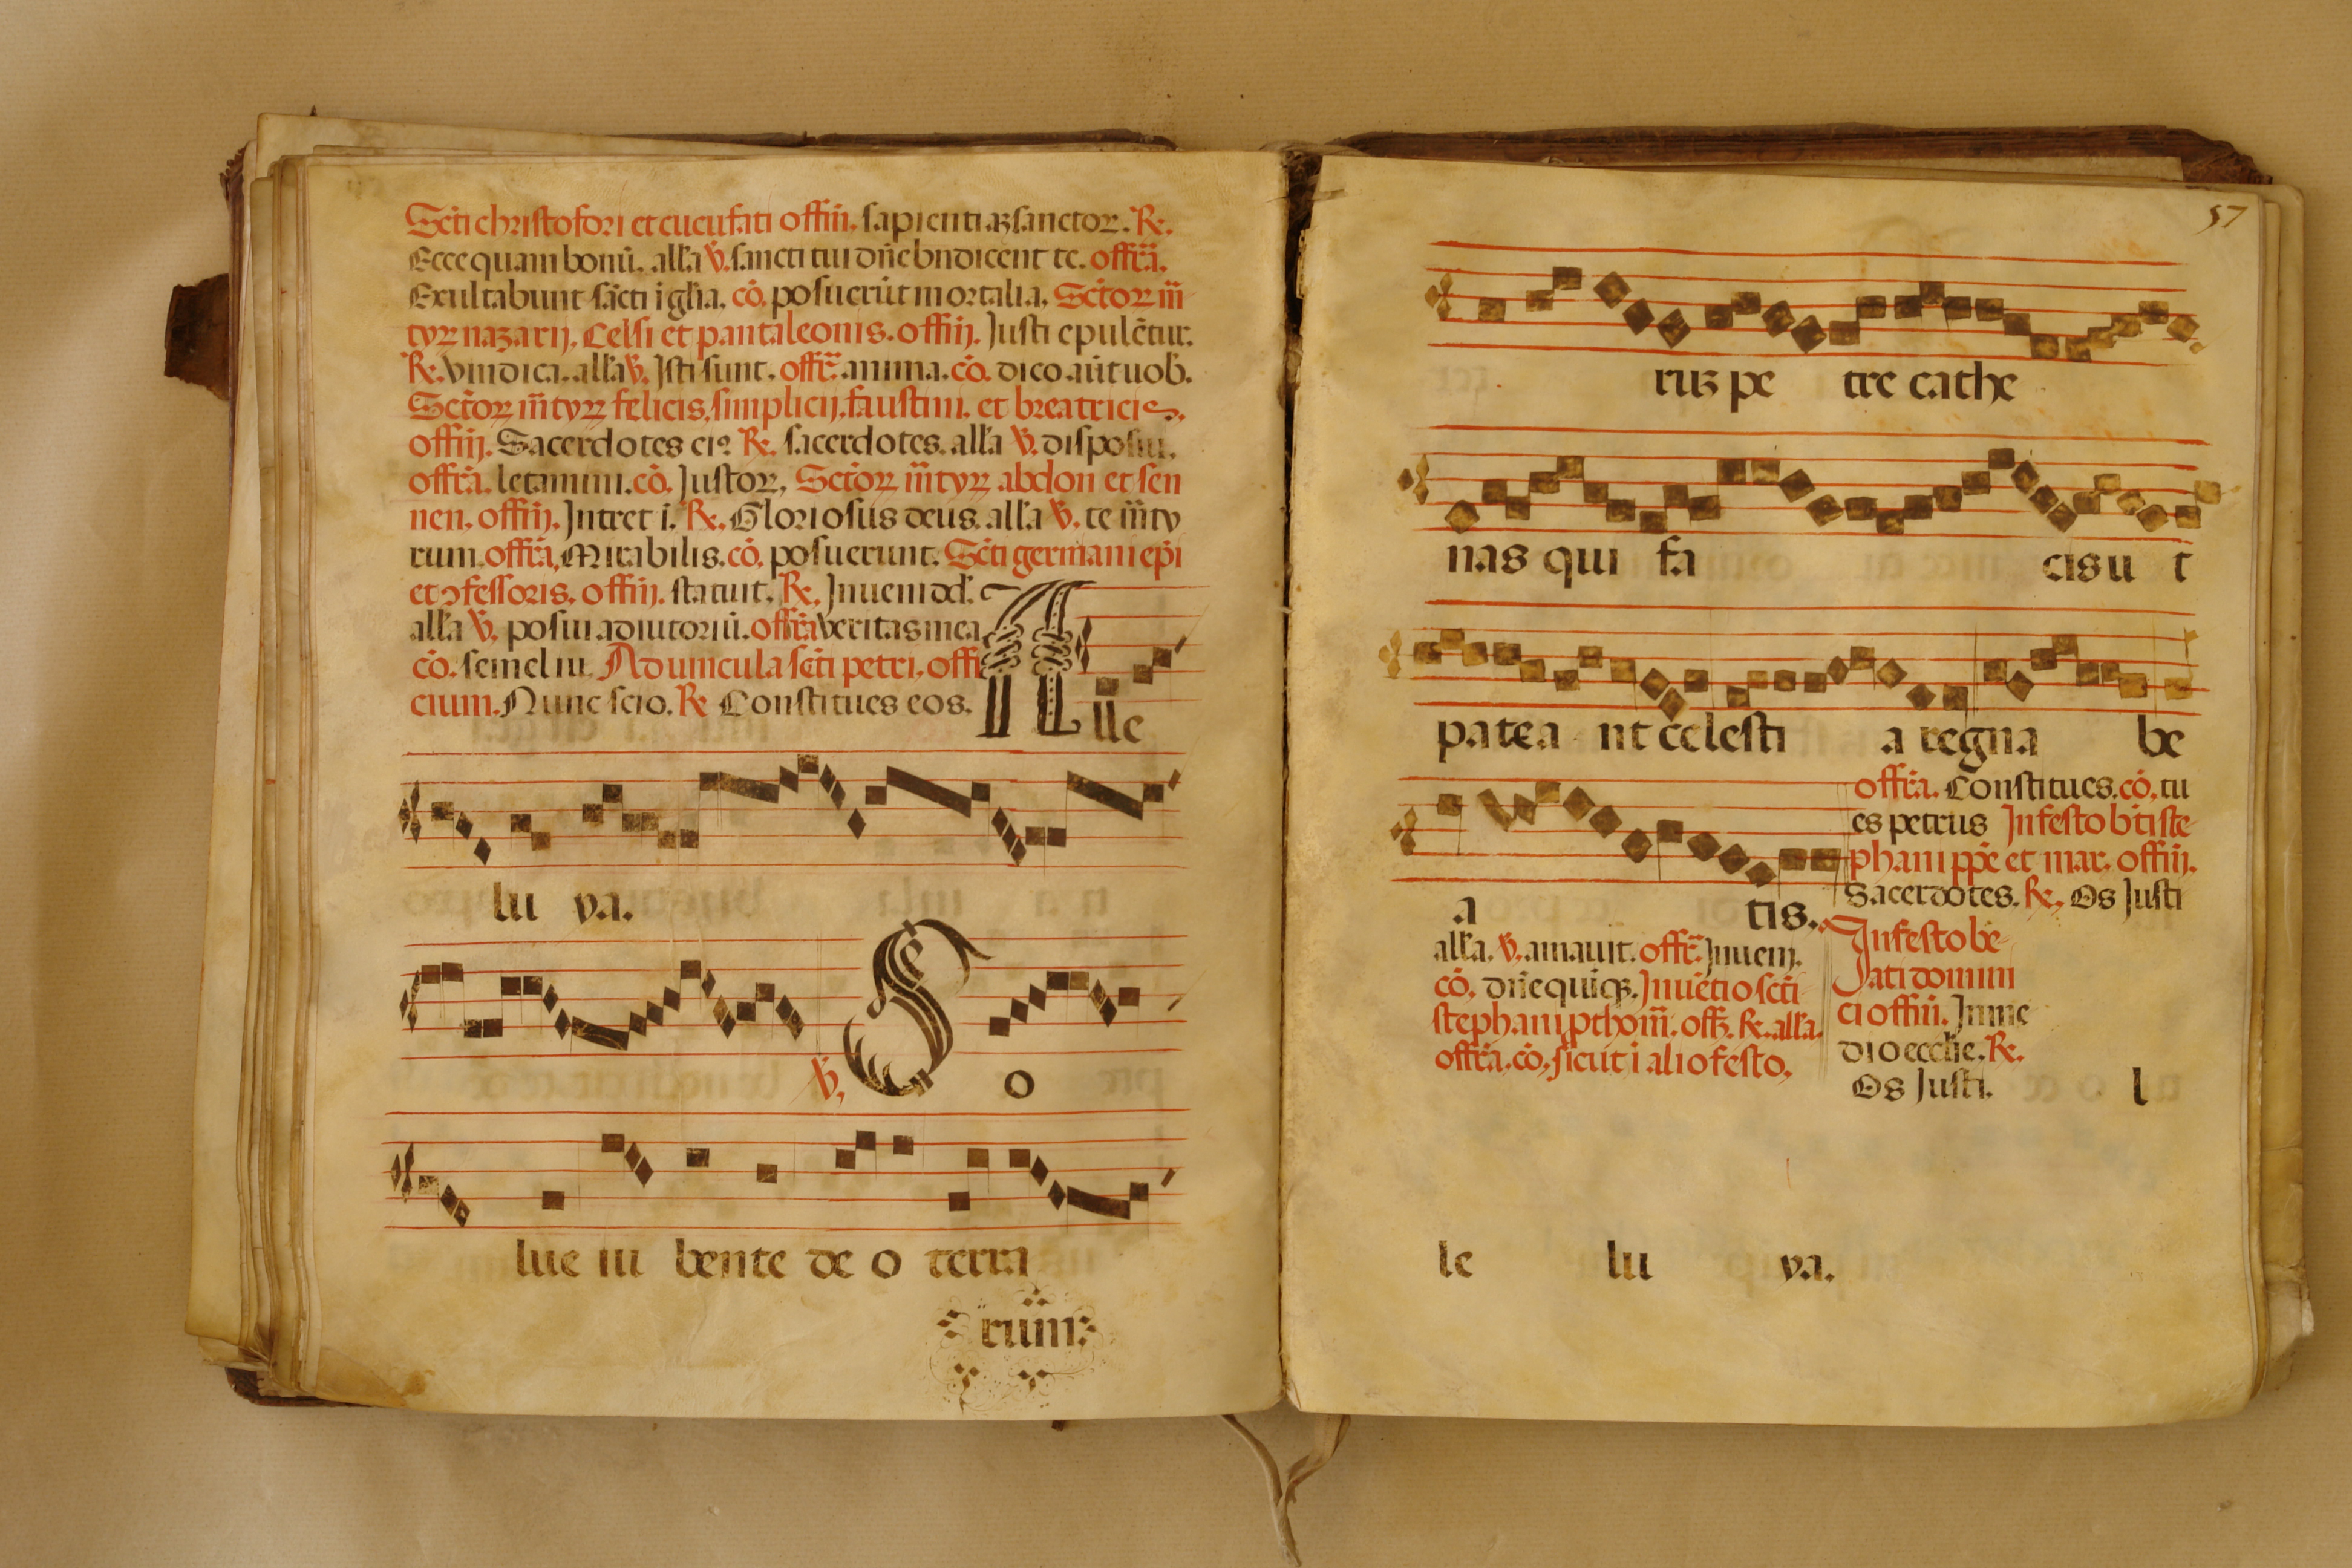 Scti christofori et cucufati offiu. sapientiaz sanctor. R.
Ecce quam bonū. alla v. sancti tui dn̄e bn̄dicent te. offr̄a.
Exultabunt sācti i gl̄ia. cō. posuerūt mortalia. Sctōr m̄
tyr nazarij. Celsi et pantaleonis. offiij. Justi epulētur.
R. vindica. alla v. Isti sunt. offr̄. anima. cō. dico aūt uob.
Sctōr m̄tyr felicis. simplicij. faustini. et breatricis.
offiij. Sacerdotes ei9 R. sacerdotes. alla v. disposui.
offr̄a. letamini. cō. Justor. Sctōr m̄tyr abdon et sen
nen. offiij. Intret i. R. Gloriosus deus. alla v. te m̄ty
rum. offr̄a. Mirabilis. cō. posuerunt. Scti germani ep̄i
et ɔfessoris. offiij. statuit. R. Inueni dd.
alla v. posui adiutoriū. offr̄a veritas mea
cō. semel iu. Ad uincula scti petri. offi
cium. Nunc scio. R Constitues eos.
A lle
lu ya.
v. S o
lue iu bente de o terra
rum
57
ruz pe tre cathe
nas qui fa cis u t
patea nt celesti a regna be
a tis.
offr̄a. Constitues. cō. tu
es petrus In festo bt̄i ste
phani pp̄e et mar. offiij.
Sacerdotes. R. Os Justi
alla. v. amauit. offr̄. Inueni.
cō. dn̄e quiqz. Inuētio scti
stephani pthom̄. off. R. alla.
offr̄a. cō. sicut i alio festo.
In festo be
ati domini
ci offiu. In me
dio eccl̄ie. R.
Os Justi. l
le lu ya.